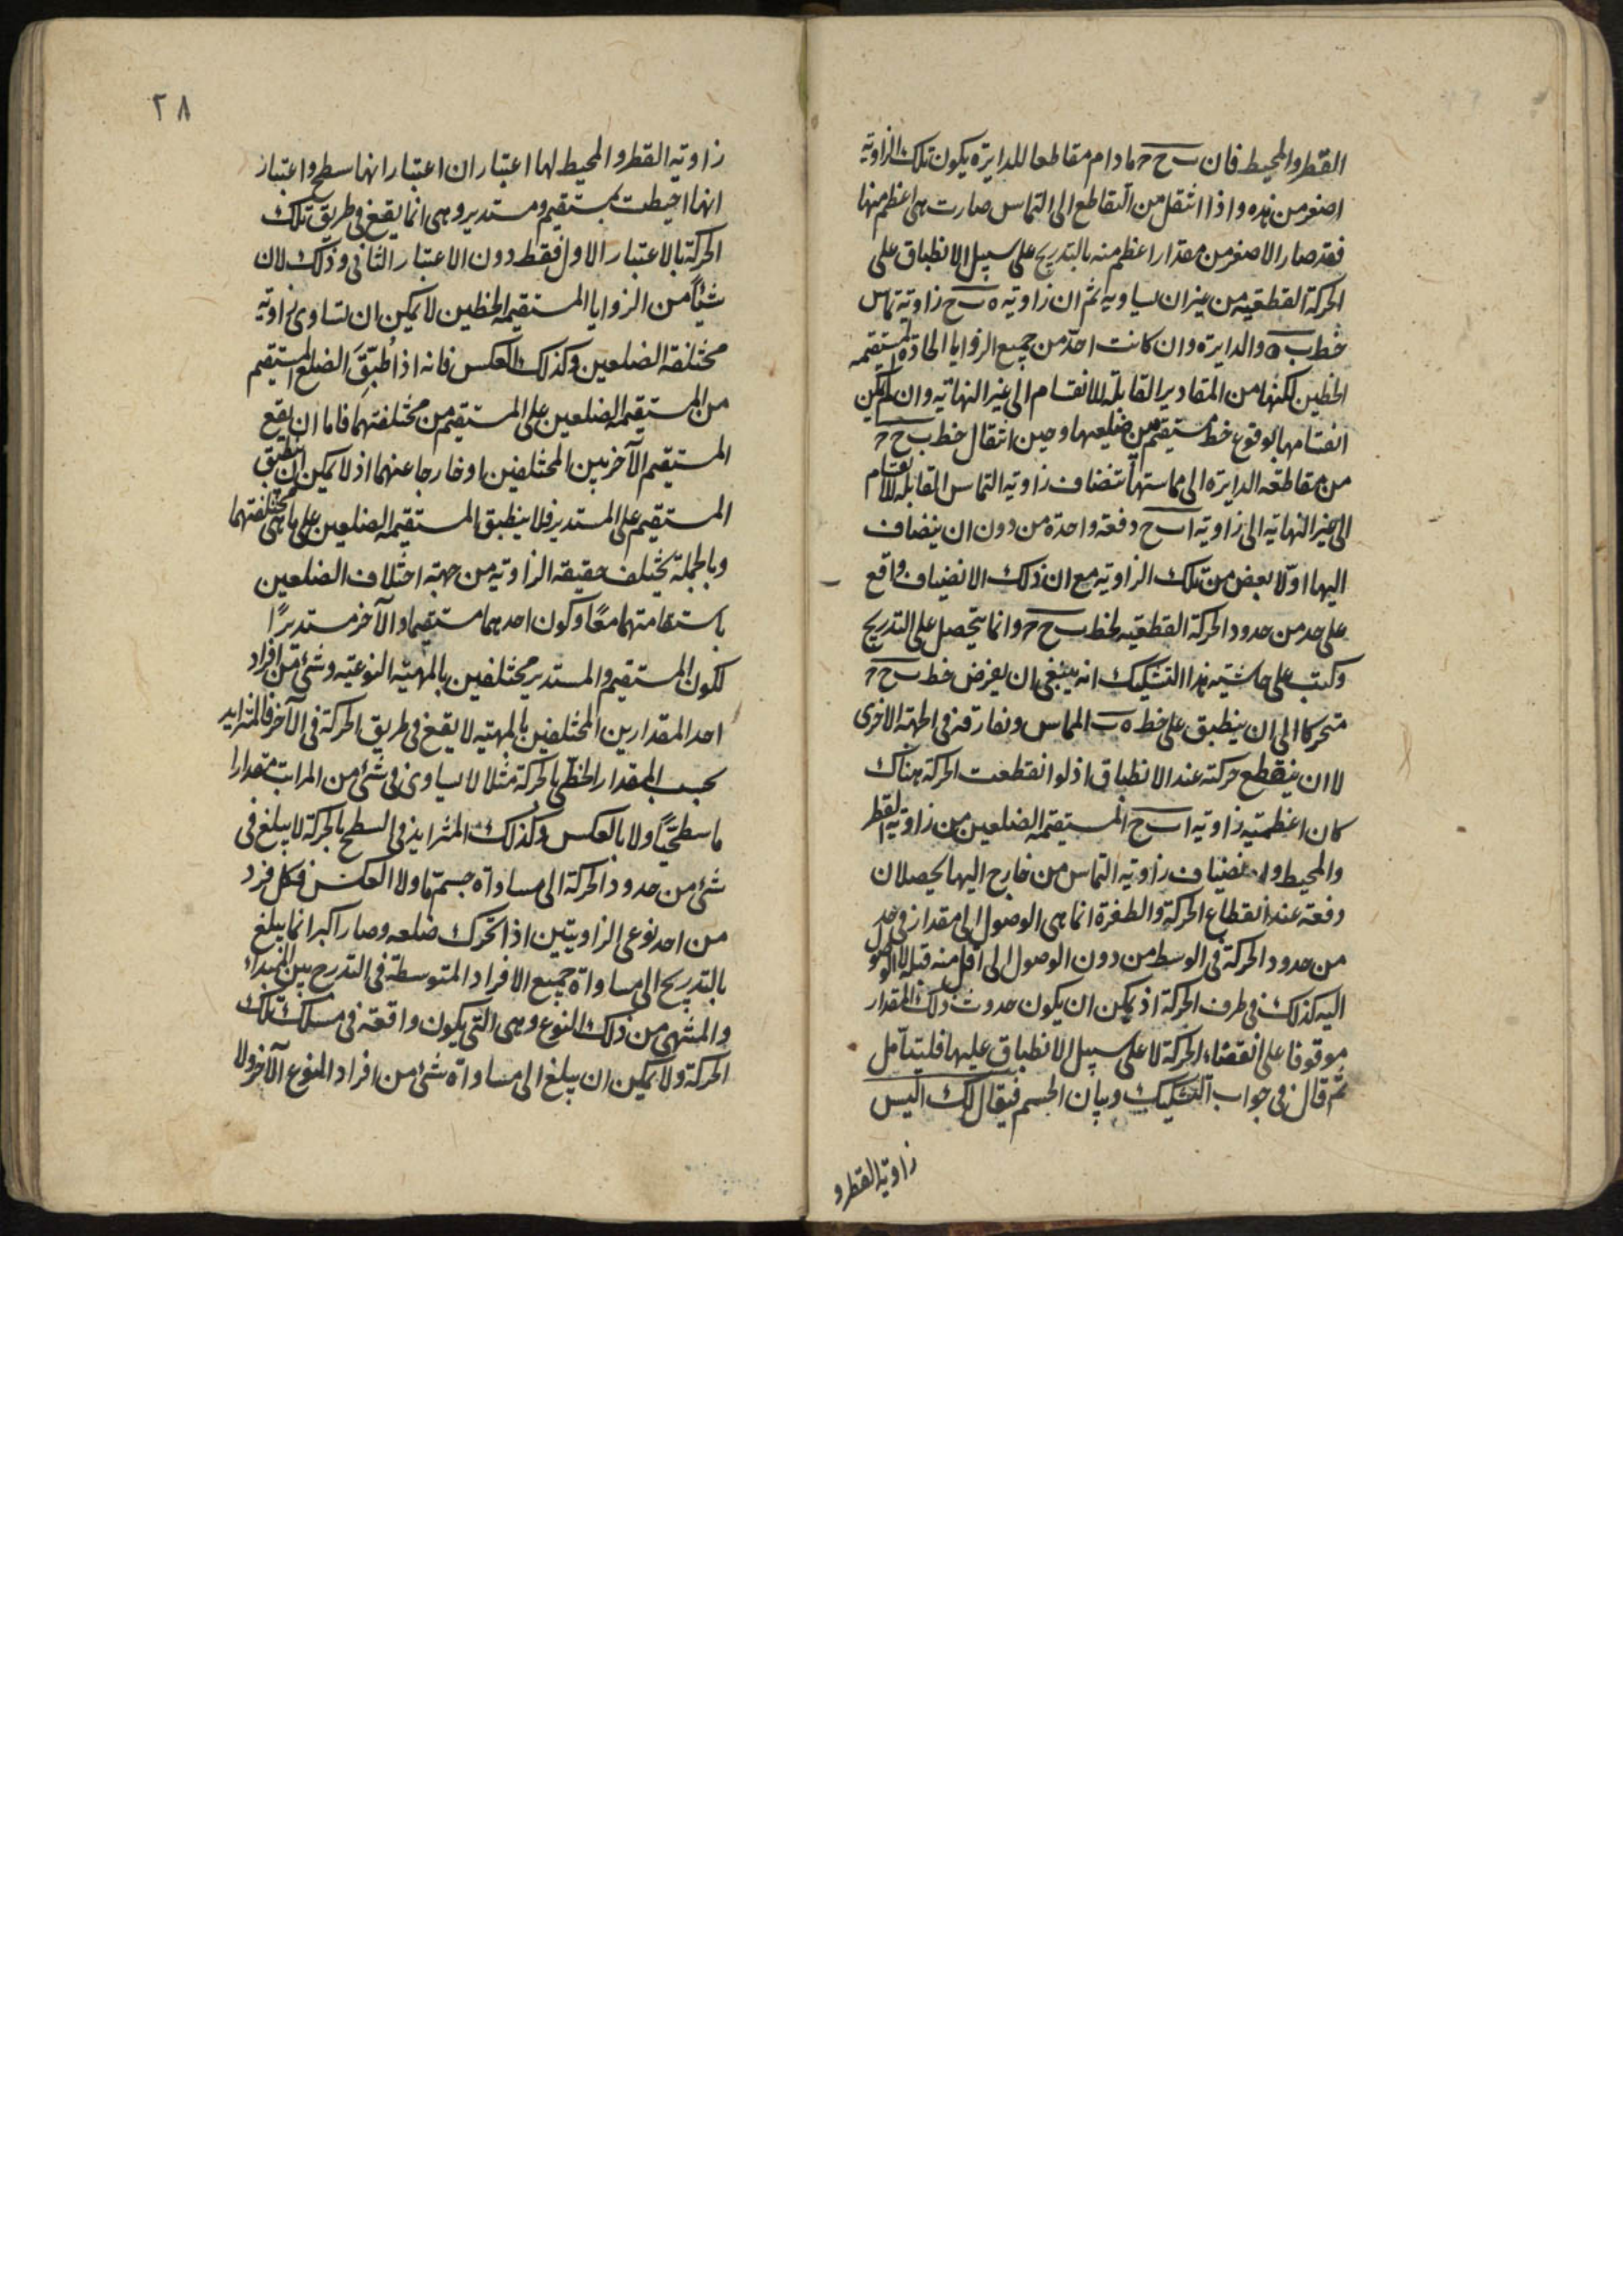 القطر والمحيط فان ب ح ر ما دام مقاطعا للدايرة يكون تلك الزاوية
اصغر من هذه واذا انتقل من التقاطع الى التماس صارت هى اعظم منها
فقد صار الاصغر من مقدار اعظم منه بالتدريج على سبيل الانطباق على
الحركة القطعية من غير ان يساويه ثم ان زاويه ه ب ح زاوية تماس
خط ب ه والدايرة وان كانت احدّ من جميع الزوايا الحادة المستقيمه
الخطين لكنها من المقادير القابلة للانقسام الى غير النهاية وان لم يكن
انقسامها بوقوع خط مستقيم بين ضلعيها وحين انتقال خط ب ح ر
من مقاطعة الدايرة الى مماستها تنضاف زاويه التماس القابله للانقسام
الى غير النهايه الى زاويه ا ب ح دفعة واحدة من دون ان ينضاف
اليها اولا بعض من تلك الزاويه مع ان ذلك الانضياف واقع
على حد من حدود الحركة القطعيه لخط ب ح ر وانما يتحصل على التدريج
وكتب على حاشيته هذا التشكيك انه ينبغى ان يفرض خط ب ح ر
متحركا الى ان ينطبق على خط ه ب المماس ونفارقه فى الجهة الاخرى
لا ان ينقطع حركته عند الانطباق اذ لو انقطعت الحركة هناك
كان اعظميه زاويه ا ب ح المستقيمه الضلعين من زاويه القطر
والمحيط وانضياف زاويه التماس من خارج اليها يحصلان
دفعة عند انقطاع الحركة والطفرة انما هى الوصول الى مقدار فى حد
من حدود الحركة فى الوسط من دون الوصول الى اقل منه قبله لا الوصول
اليه كذلك فى طرف الحركة اذ يمكن ان يكون حدوث ذلك المقدار
موقوفا على انقضاء الحركة لا على سبيل الانطباق عليها فليتأمل
ثم قال فى جواب التشكيك وبيان الحسم فيقال لك اليس
زاوية القطر و
٢٨
زاوية القطر والمحيط لها اعتباران اعتبار انها سطح واعتبار
انها احيطت بمستقيم ومستدير وهى انما يقع فى طريق تلك
الحركة بالاعتبار الاول فقط دون الاعتبار الثانى وذلك لان
شيئاً من الزوايا المستقيمة الخطين لا يمكن ان تساوى زاوية
مختلفة الضلعين وكذلك العكس فانه اذا طُبّقَ الضلع المستقيم
من المستقيمه الضلعين على المستقيم من مختلفتهما فاما ان يقع
المستقيم الآخر بين المختلفين او خارجا عنهما اذ لا يمكن ان ينطبق
المستقيم على المستدير فلا ينطبق المستقيمه الضلعين على ما هى مختلفتهما
وبالجملة يختلف حقيقه الزاويه من جهة اختلاف الضلعين
باستقامتهما معًا وكون احدهما مستقيما والآخر مستديرًا
لكون المستقيم والمستدير مختلفين بالمهيّه النوعيّه وشئ من افراد
احد المقدارين المختلفين بالمهيّه لا يقع فى طريق الحركة فى الآخر فالمتزايد
بحسب المقدار الخطّى بالحركة مثلا لا يساوى فى شئ من المراتب مقدارا
ما سطحيّاً ولا بالعكس وكذلك المتزايد فى السطح بالحركة لا يبلغ فى
شئ من حدود الحركة الى مساواة جسم ما ولا العكس فكل فرد
من احد نوعى الزاويتين اذا تحرك ضلعه وصار اكبر انما يبلغ
بالتدريج الى مساواة جميع الافراد المتوسطة فى التدرج بين المبداء
والمنتهى من ذلك النوع وهى التى يكون واقعة فى مسلك تلك
الحركة ولا يمكن ان يبلغ الى مساواة شئ من افراد النوع الآخر ولا